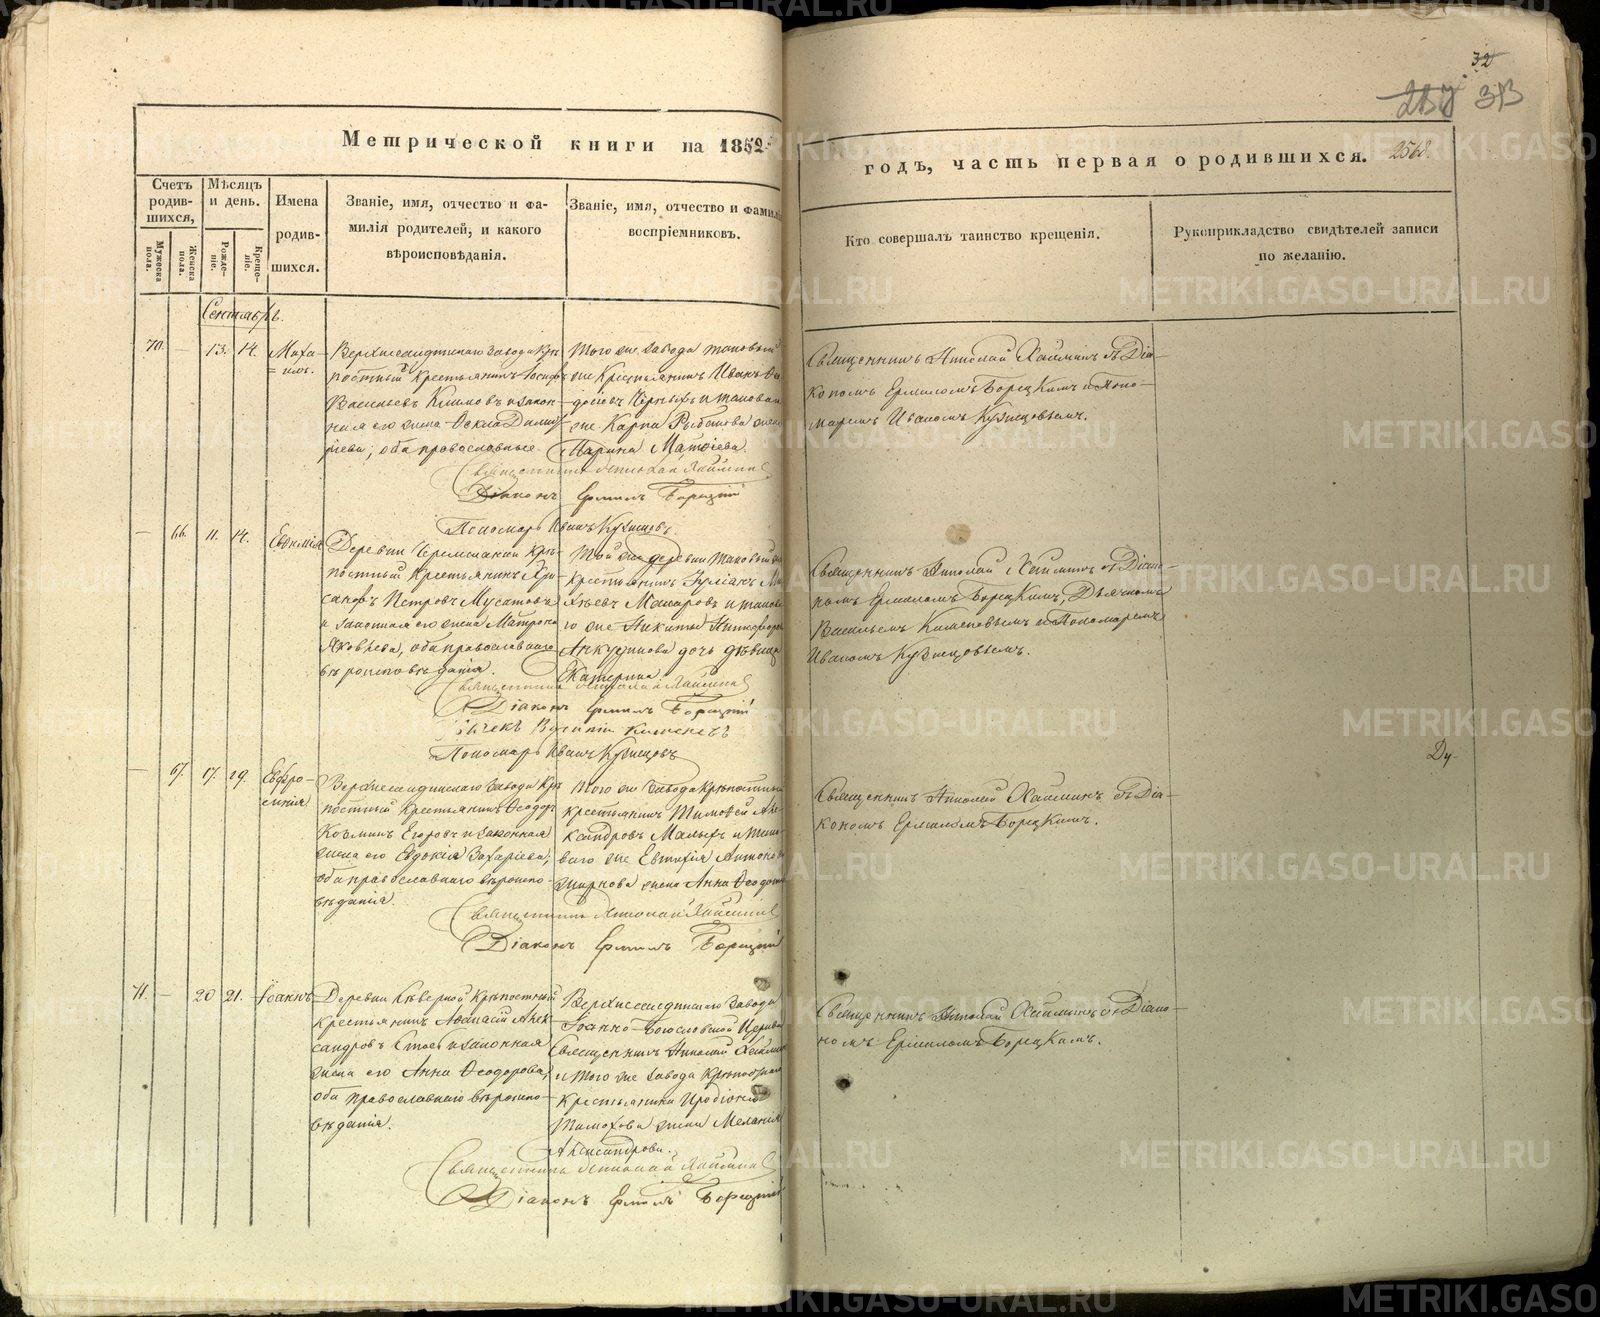 32
257 33
Метрической книги на 1852
годъ, часть первая о родившихся. 256
Счетъ родив-шихся,
Мужеска пола.
Женска пола.
Мѣсяцъ и день.
Рожде-ніе.
Креще-ніе.
Имена родив-шихся.
Званіе, имя, отчество и фа-
милія родителей, и какого
вѣроисповѣданія.
Званіе, имя, отчество и фамилі
воспріемниковъ.
Кто совершалъ таинство крещенія.
Рукоприкладство свидѣтелей записи
по желанію.
Сентябрь.
70. — 13. 14. Миха-
илъ.
Верхнесалдинскаго завода Крѣ
постный Крестьянинъ Іосифъ
Васильевъ Климовъ и закон-
ная его жена Ѳекла Дими
ріева; оба православные
Того же завода таковый
же Крестьянинъ Иванъ
Черныхъ и таковаго
же Карпа жена
Марина Матѳіева.
Священникъ Николай Хайминъ съ Діа-
кономъ Ермиломъ Борецкимъ и Поно-
маремъ Иваномъ Кузнецовымъ.
Священникъ Николай Хайминъ
Діаконъ Ермилъ Борецкій
Пономарь Иванъ Кузнецовъ
— 66. 11. 14. Евфимія
Деревни Крѣ-
постный Крестьянинъ Хри-
санѳъ Петровъ Мусатовъ
и законная его жена Матрона
Яковлева, оба православнаго
вѣроисповѣданія.
Той же деревни таковый же
Крестьянинъ
Макаровъ и таков
го же Никиты
дочь дѣвица
Екатерина.
Священникъ Николай Хайминъ съ Діако-
номъ Ермиломъ Борецкимъ, Дьячкомъ
Васильемъ и Пономаремъ
Иваномъ Кузнецовымъ.
Священникъ Николай Хайминъ
Діаконъ Ермилъ Борецкій
Пономарь Иванъ Кузнецовъ
— 67. 17. 19. Евфро-
синія
Верхнесалдинскаго завода Крѣ
постный Крестьянинъ Ѳеодоръ
Козминъ Егоровъ и законная
жена его Евдокія Захаріева;
оба православнаго вѣроиспо-
вѣданія.
Того же завода Крѣпостный
крестьянинъ Тимоѳей Алек
сандровъ Малыхъ и тако-
ваго же Евтихія Антоно
жена Анна Ѳеодото
Священникъ Николай Хайминъ съ Діа-
кономъ Ермиломъ Борецкимъ.
Священникъ Николай Хайминъ
Діаконъ Ермилъ Борецкій
Ду-
71. — 20 21. Іоаннъ
Деревни Сѣверной Крѣпостный
крестьянинъ Аѳанасій Алек
сандровъ и законная
жена его Анна Ѳеодорова,
оба православнаго вѣроиспо-
вѣданія.
Верхнесалдинскаго завода
Іоанно-Богословской Церкви
Священникъ Николай Хайминъ
и того же завода Крѣпостнаго
Крестьянина Иродіона
Тимохова жена Меланія
Александрова.
Священникъ Николай Хайминъ съ Діако-
номъ Ермиломъ Борецкимъ.
Священникъ Николай Хайминъ
Діаконъ Ермилъ Борецкій
METRIKI.GASO-URAL.RU